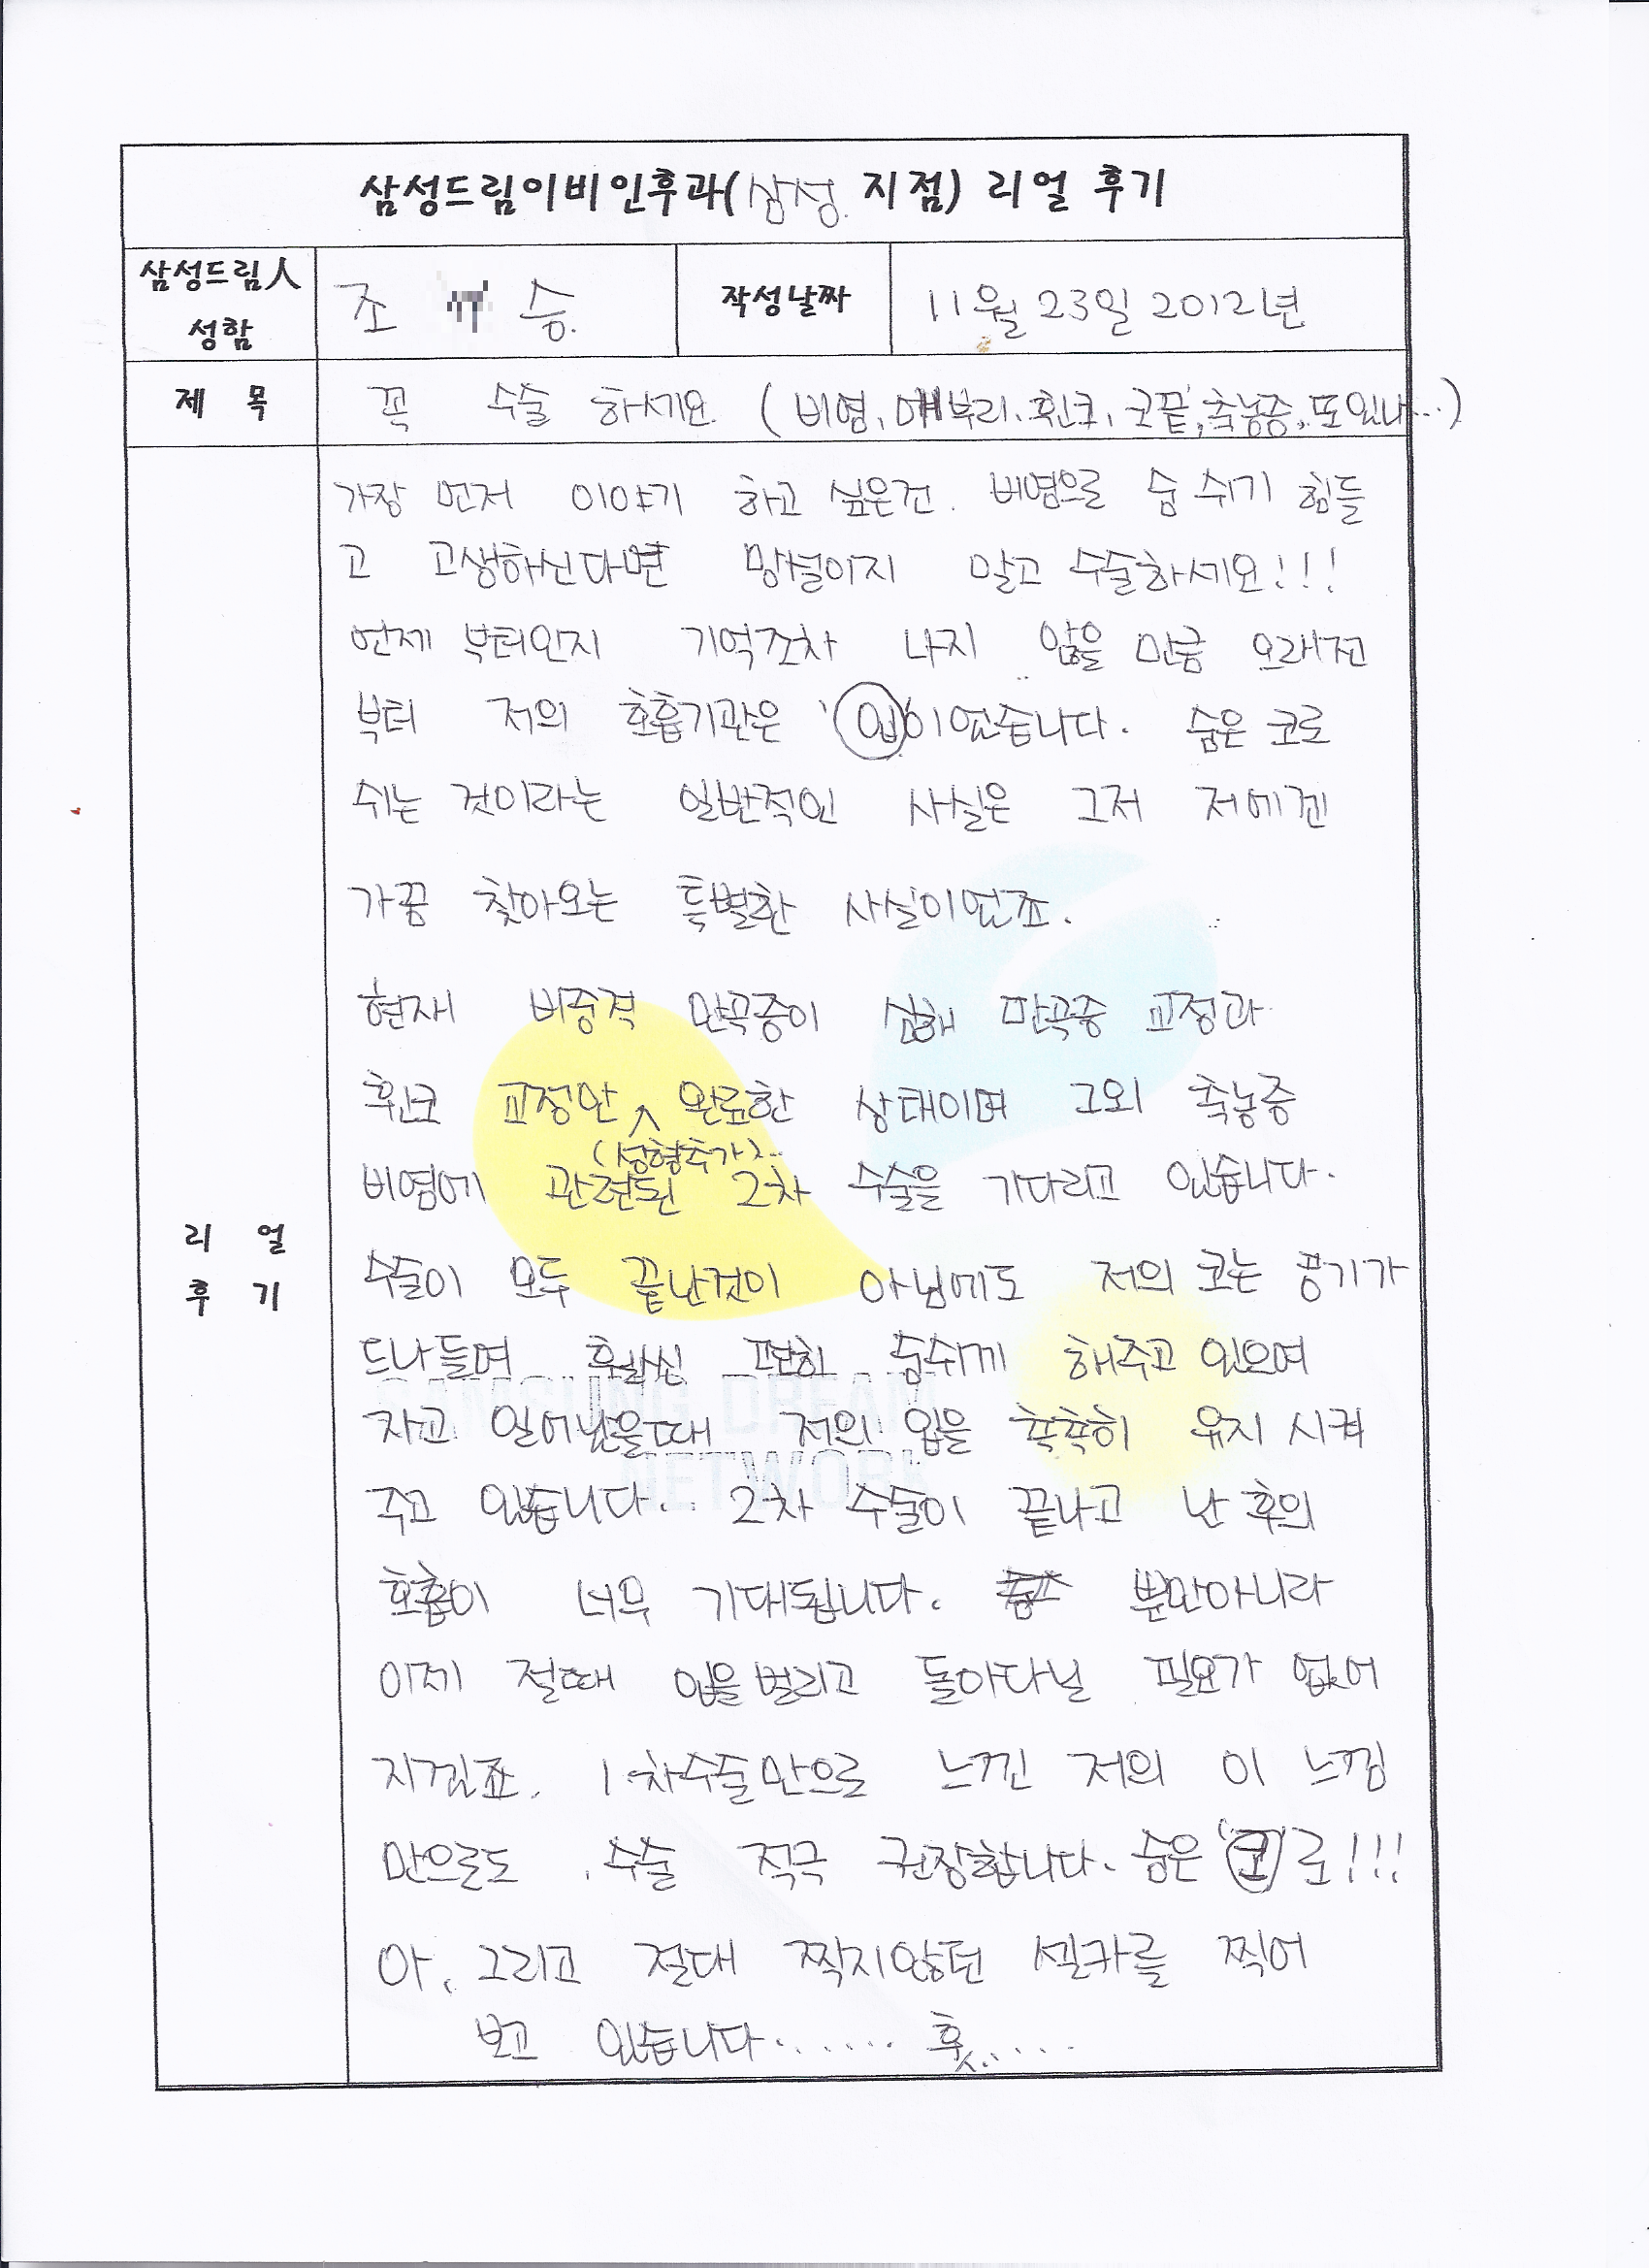 삼성드림이비인후과(삼성 지점) 리얼 후기
삼성드림人 성함
조 승
작성날짜
11월 23일 2012년
제 목
꼭 수술 하세요. (비염, 매부리, 휜코, 코끝, 축농증, 또있나...)
리 얼
후 기
가장 먼저 이야기 하고 싶은건. 비염으로 숨 쉬기 힘들
고 고생하신다면 망설이지 말고 수술하세요!!!
언제 부터인지 기억조차 나지 않을 만큼 오래전
부터 저의 호흡기관은 '입'이었습니다. 숨은 코로
쉬는 것이라는 일반적인 사실은 그저 저에겐
가끔 찾아오는 특별한 사실이었죠.
현재 비중격 만곡증이 심해 만곡증 교정과
휜코 교정만 완료한 상태이며 그외 축농증
(성형추가)..
비염에 관련된 2차 수술을 기다리고 있습니다.
수술이 모두 끝난것이 아님에도 저의 코는 공기가
드나들며 훨씬 편히 숨쉬게 해주고 있으며
SAMSUNG DREAM
자고 일어났을때 저의 입을 촉촉히 유지 시켜
NETWORK
주고 있습니다.. 2차 수술이 끝나고 난 후의
호흡이 너무 기대됩니다. 뿐만아니라
이제 절때 입을 벌리고 돌아다닐 필요가 없어
지겠죠. 1차수술만으로 느낀 저의 이 느낌
만으로도 수술 적극 권장합니다. 숨은 '코'로!!!
아, 그리고 절대 찍지않던 셀카를 찍어
보고 있습니다....... 훗.....